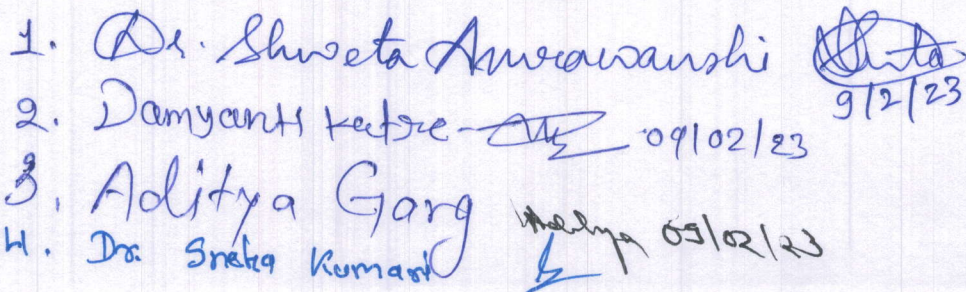 1. Dr. Shweta Anurawanshi
9/2/23
2. Damyanti Katre 09/02/23
3. Aditya Garg Aditya 09/02/23
4. Dr. Sneha Kumari